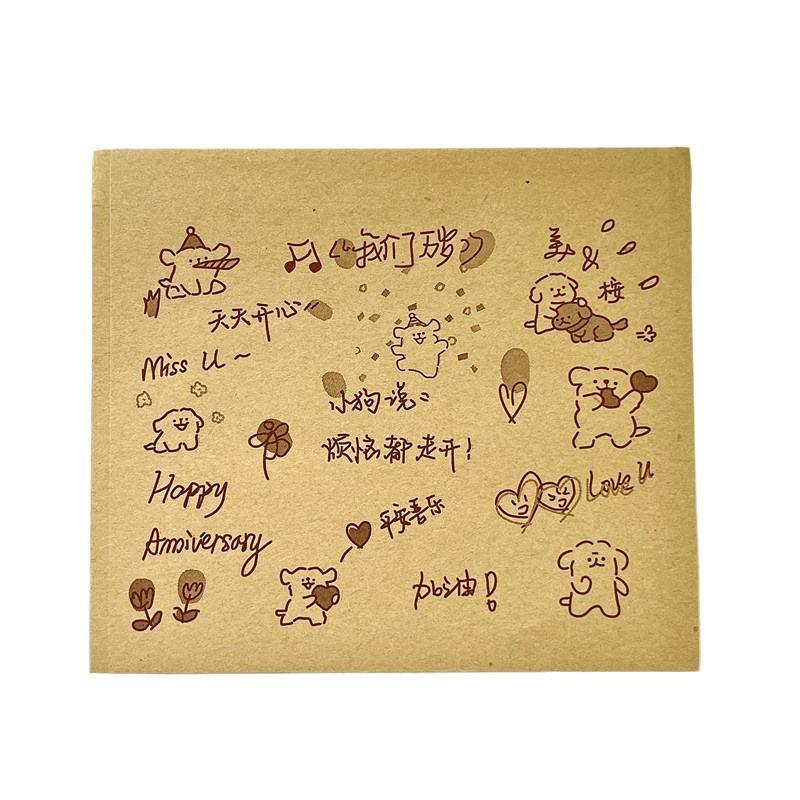 我们万岁
美&
桉
天天开心
Miss U ~
小狗说:
烦恼都走开!
Happy
Anniversary
Love U
平安喜乐
加油!